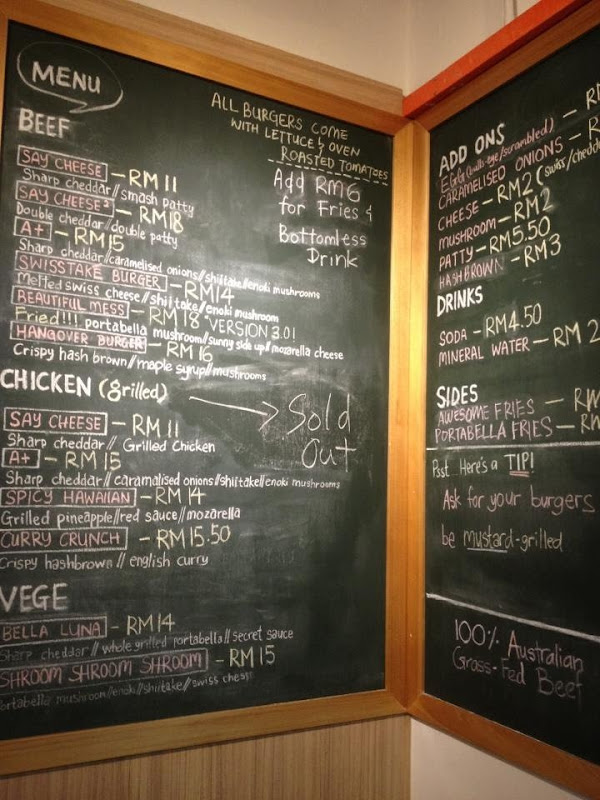 MENU
ALL BURGERS COME
WITH LETTUCE & OVEN
ROASTED TOMATOES
Add RM6
for Fries &
Bottomless
Drink
BEEF
SAY CHEESE - RM 11
Sharp cheddar // smash patty
SAY CHEESE² - RM18
Double cheddar / double patty
A+ - RM15
Sharp cheddar//caramelised onions//shiitake//enoki mushrooms
SWISSTAKE BURGER - RM14
Melted swiss cheese//shiitake//enoki mushroom
BEAUTIFUL MESS - RM 18 "VERSION 3.0!
Fried!!! portabella mushroom/sunny side up//mozarella cheese
HANGOVER BURGER - RM 16
Crispy hash brown//maple syrup//mushrooms
CHICKEN (grilled)
Sold
Out
SAY CHEESE - RM 11
Sharp cheddar // Grilled Chicken
A+ - RM 15
Sharp cheddar//caramalised onions//shiitake//enoki mushrooms
SPICY HAWAIIAN - RM 14
Grilled pineapple//red sauce//mozarella
CURRY CRUNCH - RM 15.50
Crispy hashbrown // english curry
VEGE
BELLA LUNA - RM14
Sharp cheddar // whole grilled portabella//secret sauce
SHROOM SHROOM SHROOM - RM 15
portabella mushroom//enoki//shiitake//swiss cheese
ADD ONS
Eggs (bulls-eye/scrambled) -
CARAMELISED ONIONS - R
CHEESE - RM2 (swiss/chedda
MUSHROOM - RM2
PATTY - RM5.50
HASHBROWN - RM3
DRINKS
SODA - RM4.50
MINERAL WATER - RM 2
SIDES
AWESOME FRIES - RM
PORTABELLA FRIES - RM
Psst. Here's a TIP!
Ask for your burgers
be mustard-grilled
100% Australian
Grass-Fed Beef